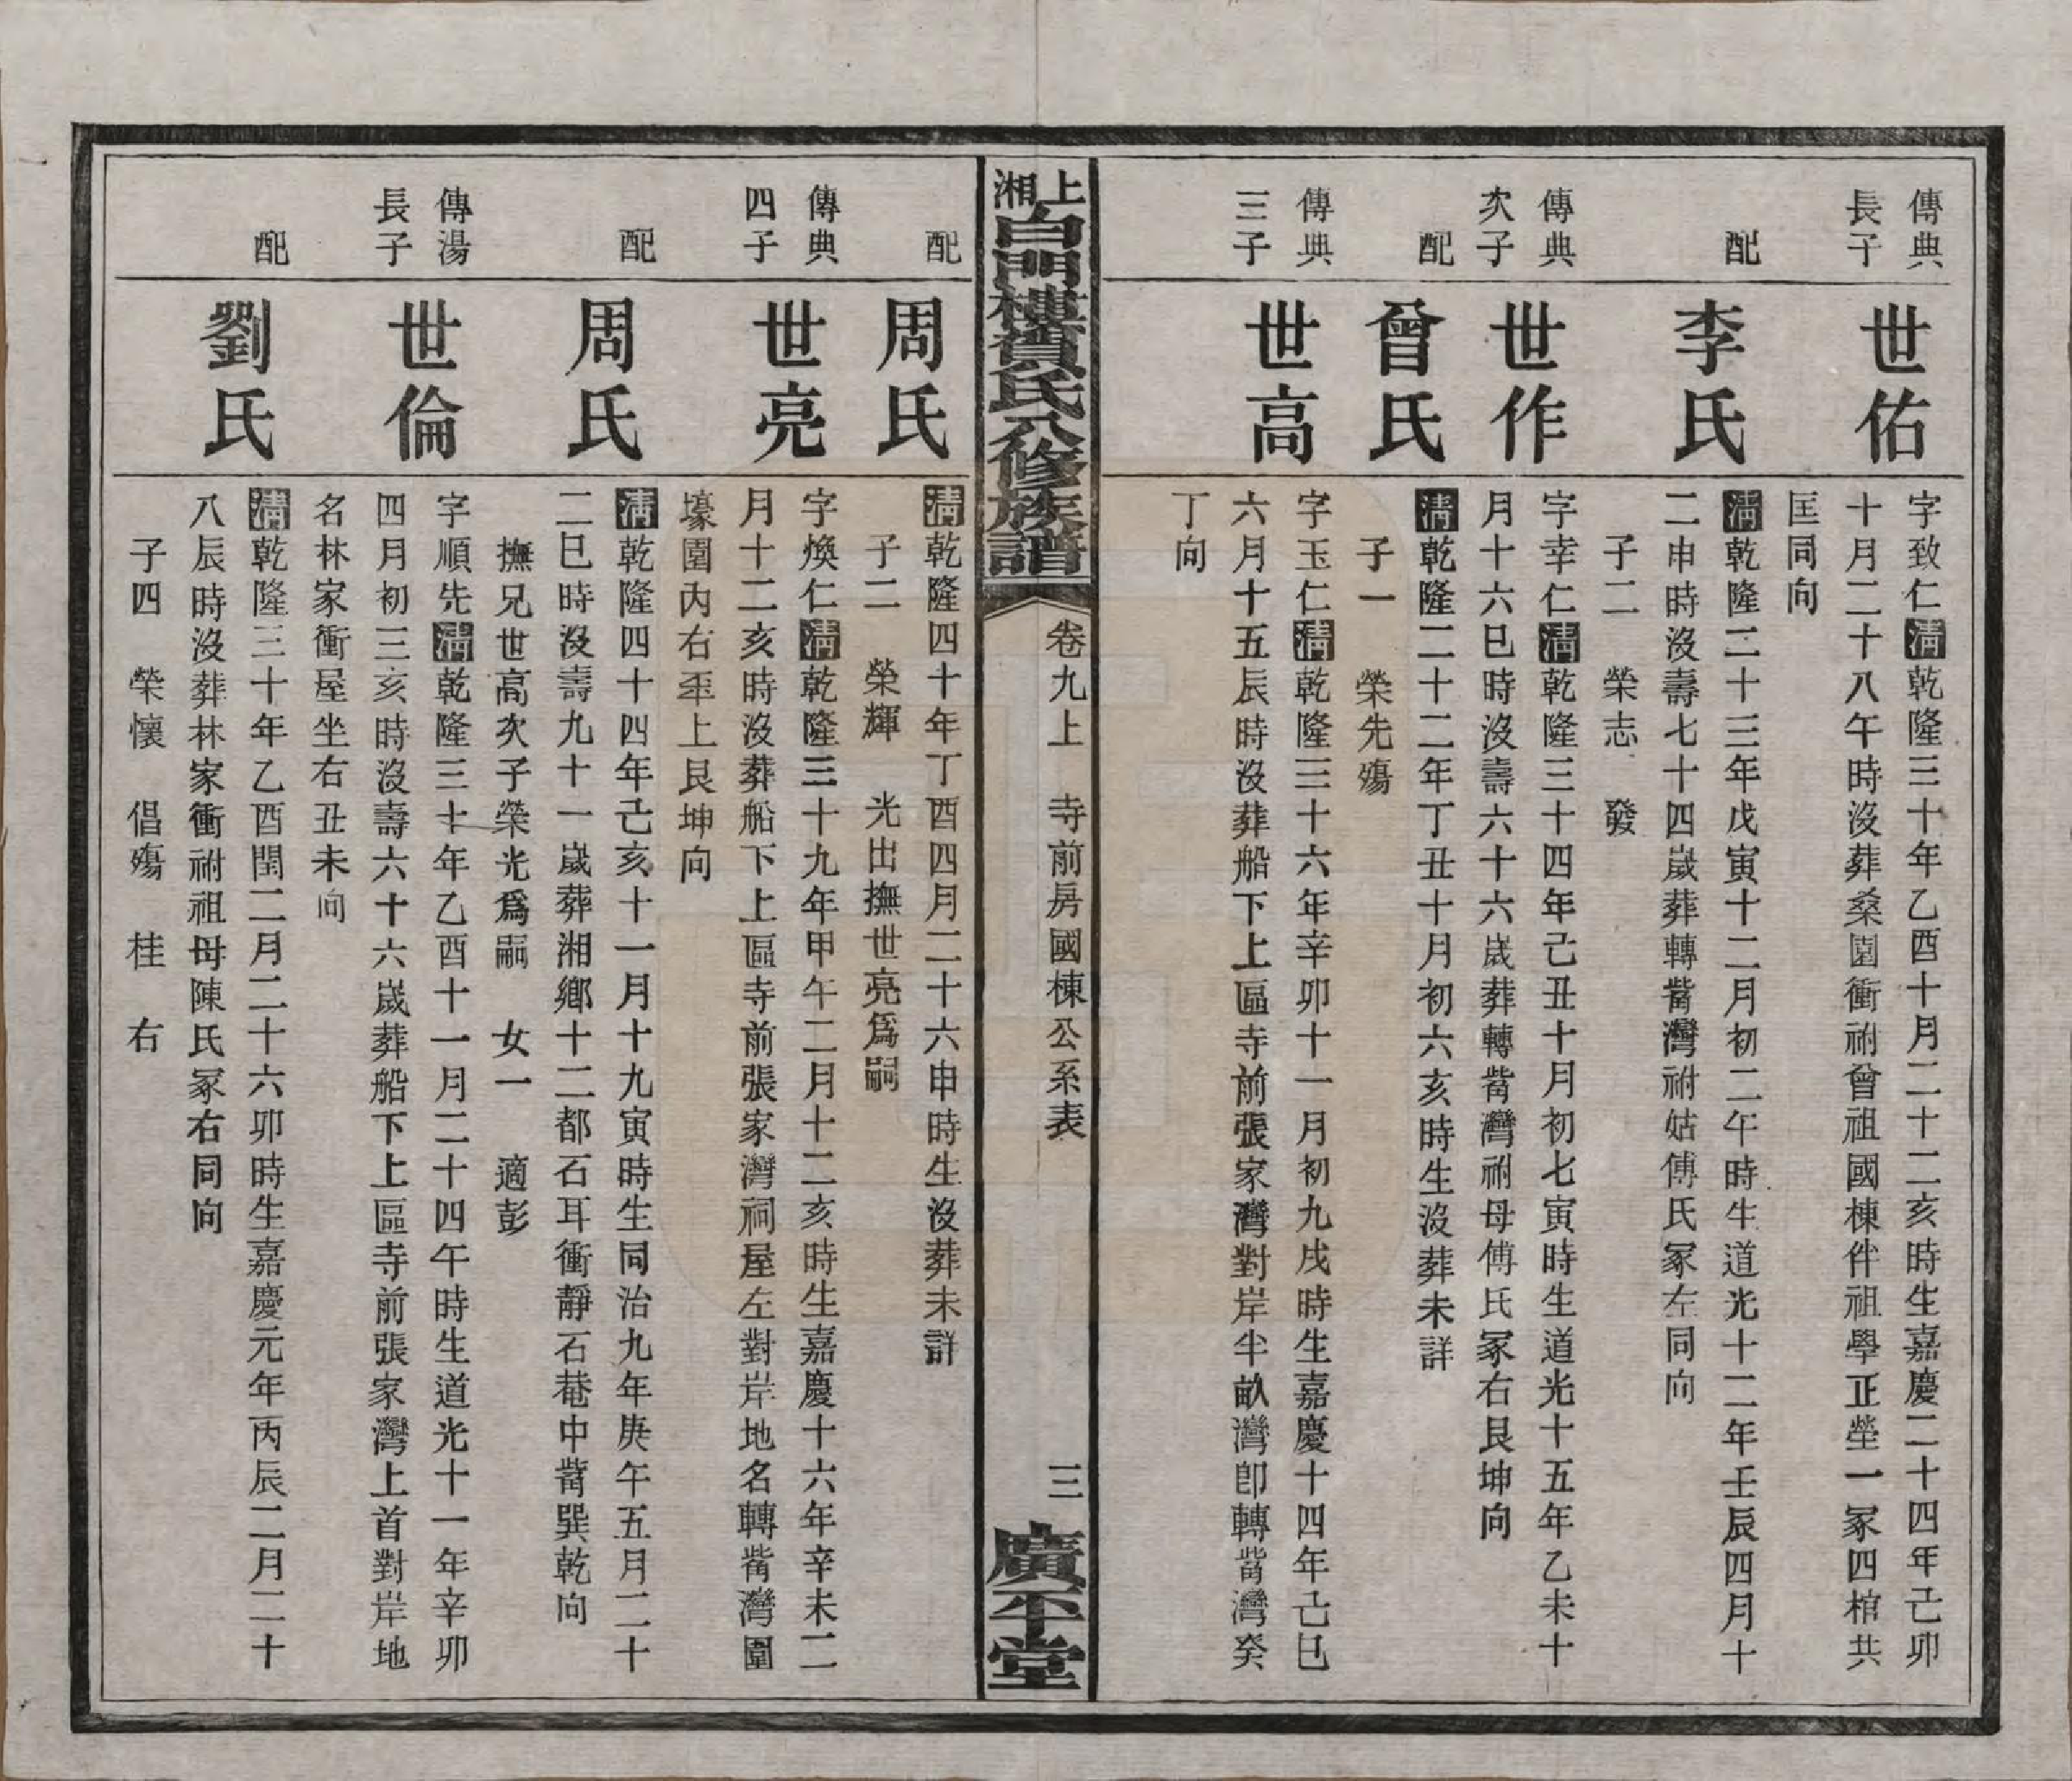 傳典
長子
世佑
字致仁清乾隆三十年乙酉十月二十二亥時生嘉慶二十四年己卯
十月二十八午時沒葬桑園衝祔曾祖國棟伴祖學正塋一冢四棺共
匡同向
配
李氏
清乾隆二十三年戊寅十二月初二午時生道光十二年壬辰四月十
二申時沒壽七十四歲葬轉嘴灣祔姑傅氏冢左同向
子二 榮志 發
傳典
次子
世作
字幸仁清乾隆三十四年己丑十月初七寅時生道光十五年乙未十
月十六巳時沒壽六十六歲葬轉嘴灣祔母傅氏冢右艮坤向
配
曾氏
清乾隆二十二年丁丑十月初六亥時生沒葬未詳
子一 榮先殤
傳典
三子
世高
字玉仁清乾隆三十六年辛卯十一月初九戌時生嘉慶十四年己巳
六月十五辰時沒葬船下上區寺前張家灣對岸半畝灣卽轉嘴灣癸
丁向
上湘白門樓賀氏八修族譜
卷九上 寺前房國棟公系表
三
廣平堂
配
周氏
清乾隆四十年丁酉四月二十六申時生沒葬未詳
子二 榮輝 光出撫世亮爲嗣
傳典
四子
世亮
字煥仁清乾隆三十九年甲午二月十二亥時生嘉慶十六年辛未二
月十二亥時沒葬船下上區寺前張家灣祠屋左對岸地名轉嘴灣圍
壕圍內右坯上艮坤向
配
周氏
清乾隆四十四年己亥十一月十九寅時生同治九年庚午五月二十
二巳時沒壽九十一歲葬湘鄉十二都石耳衝靜石菴中嘴巽乾向
撫兄世高次子榮光爲嗣 女一 適彭
傳湯
長子
世倫
字順先清乾隆三十年乙酉十一月二十四午時生道光十一年辛卯
四月初三亥時沒壽六十六歲葬船下上區寺前張家灣上首對岸地
名林家衝屋坐右丑未向
配
劉氏
清乾隆三十年乙酉閏二月二十六卯時生嘉慶元年丙辰二月二十
八辰時沒葬林家衝祔祖母陳氏冢右同向
子四 榮懷 倡殤 桂 右